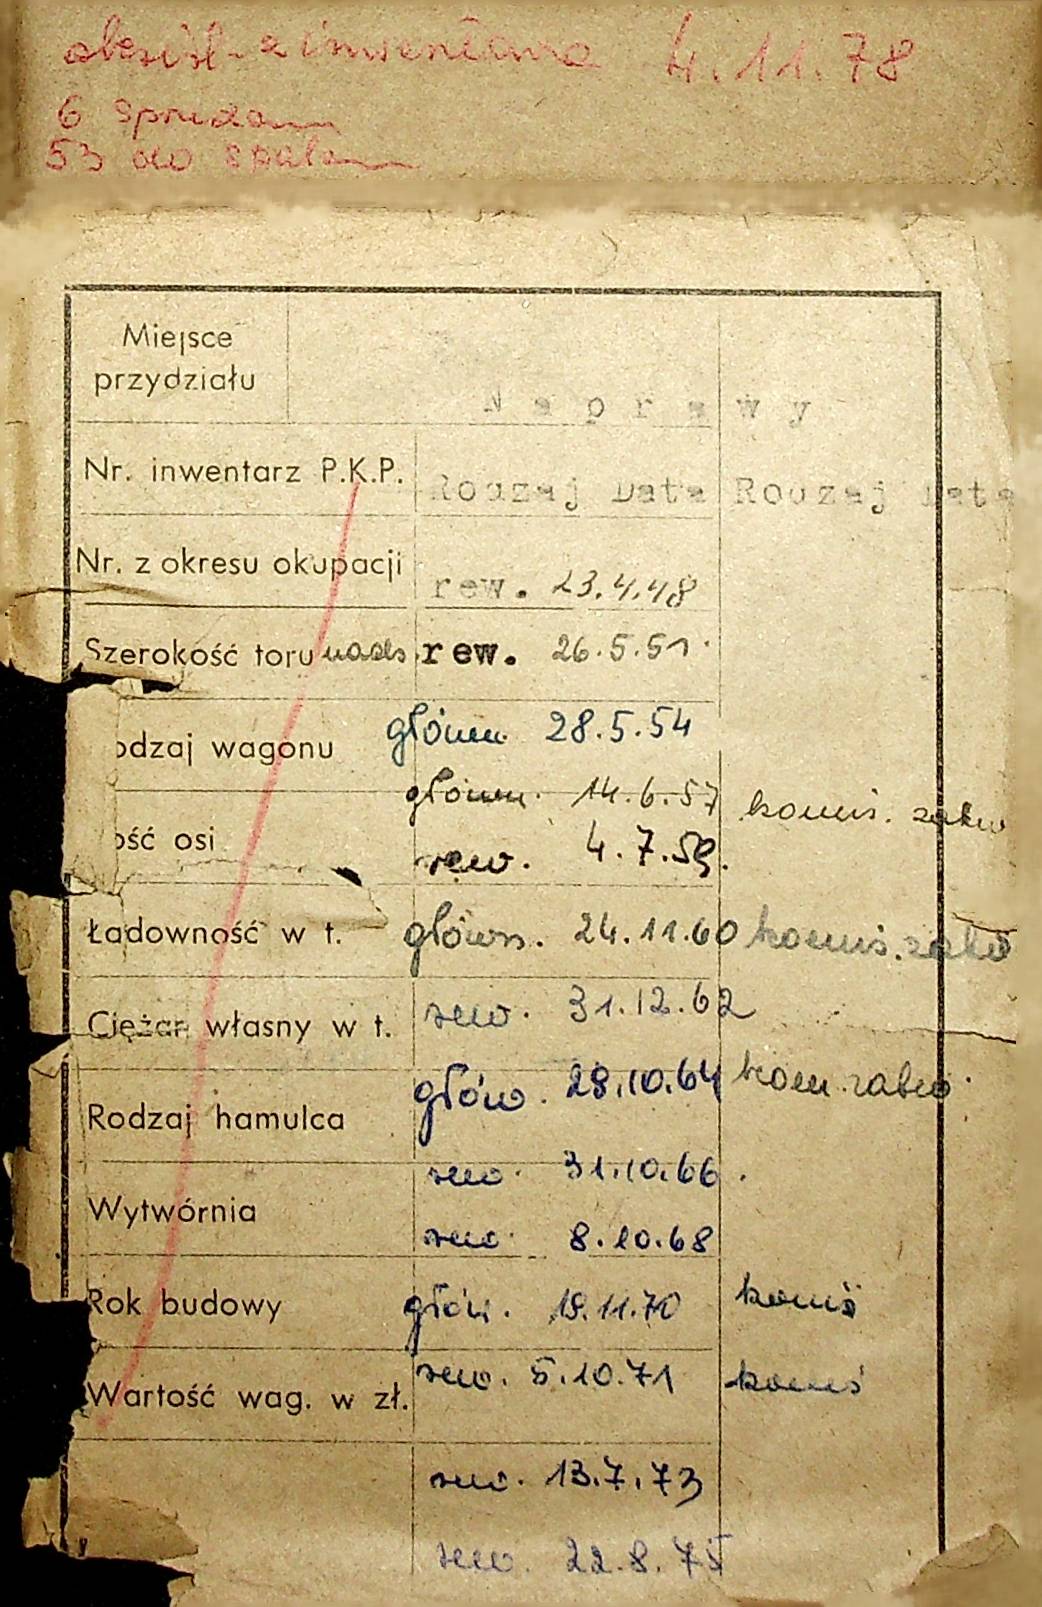 skreśl. z inwentarza 4.11.78
6 sprzedam
53 do spalen
Miejsce
przydziału
Naprawy
Nr. inwentarz P.K.P.
Rodzaj Data Rodzaj Data
Nr. z okresu okupacji
rew. 23.4.48
Szerokość toru rew. 26.5.51
główn. 28.5.54
odzaj wagonu
główn. 14.6.57 komis.
ość osi rew. 4.7.59.
Ładowność w t. główn. 24.11.60 komis.
Ciężar własny w t. rew. 31.12.62
główn. 28.10.64 kom.
Rodzaj hamulca
rew. 31.10.66.
Wytwórnia
rew. 8.10.68
Rok budowy główn. 19.11.70 komis
rew. 5.10.71 komis
Wartość wag. w zł.
rew. 13.7.73
rew. 22.8.75